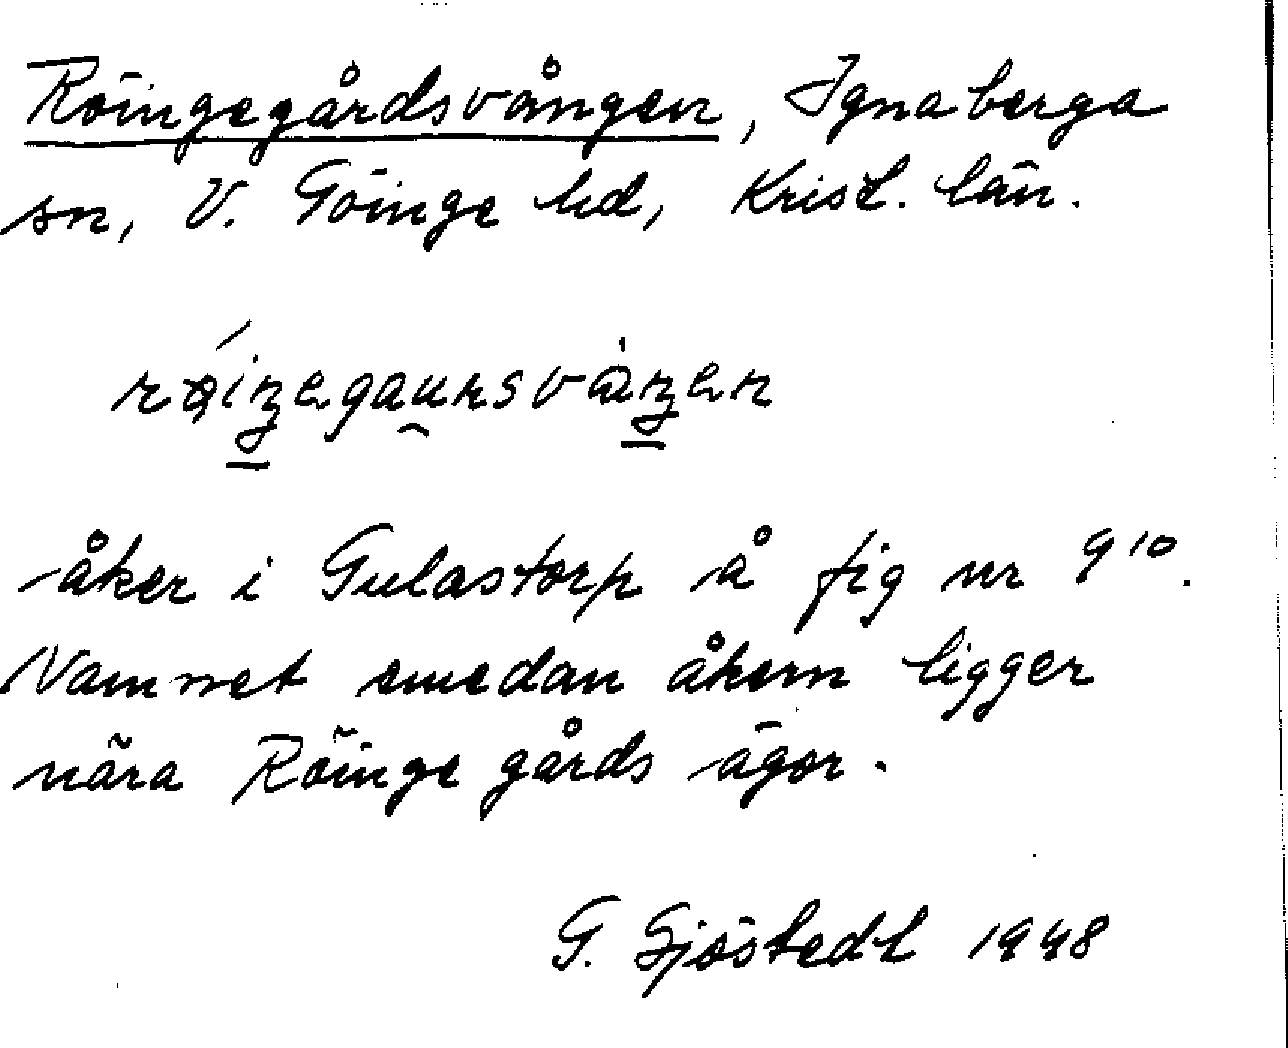 Röingegårdsvången, Ignaberga
sn, V. Göinge hd, Krist. län.
åker i Gulastorp å fig nr 9¹⁰.
Namnet emedan åkern ligger
nära Röinge gårds ägor.
G. Sjöstedt 1948